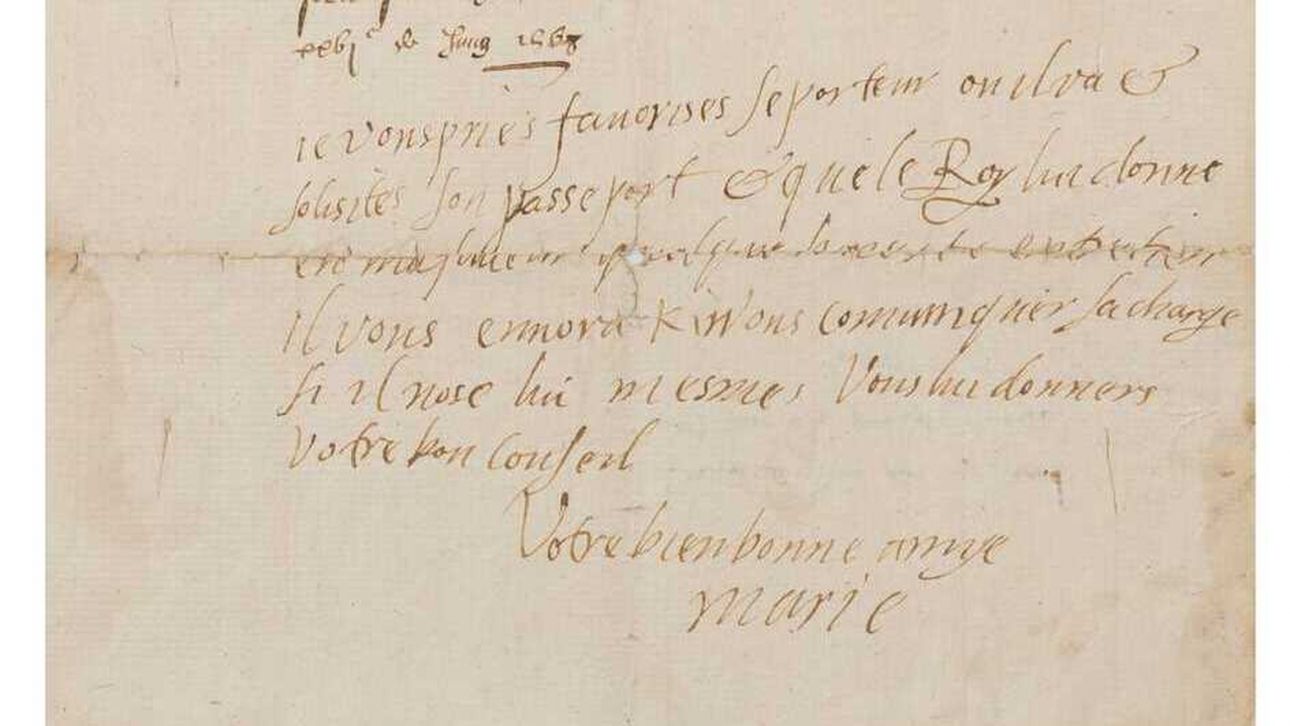 xxvj e de Jung 1568
ie vous pries favorises se porteur ou il va &
solisites son passeport & que le Roy lui donne
en ma faveur quelque
il vous ennora k vous comuniquer sa charge
si il nose lui mesmes vous lui donneres
votre bon conseil
Votre bien bonne amye
Marie